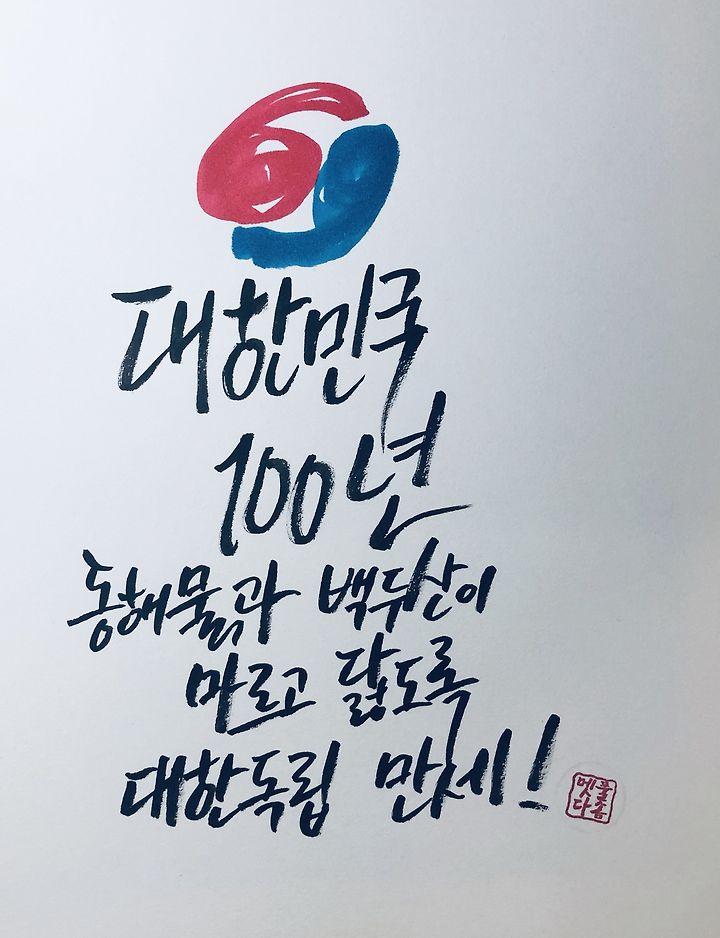 대한민국
100년
동해물과 백두산이
마르고 닳도록
대한독립 만세!